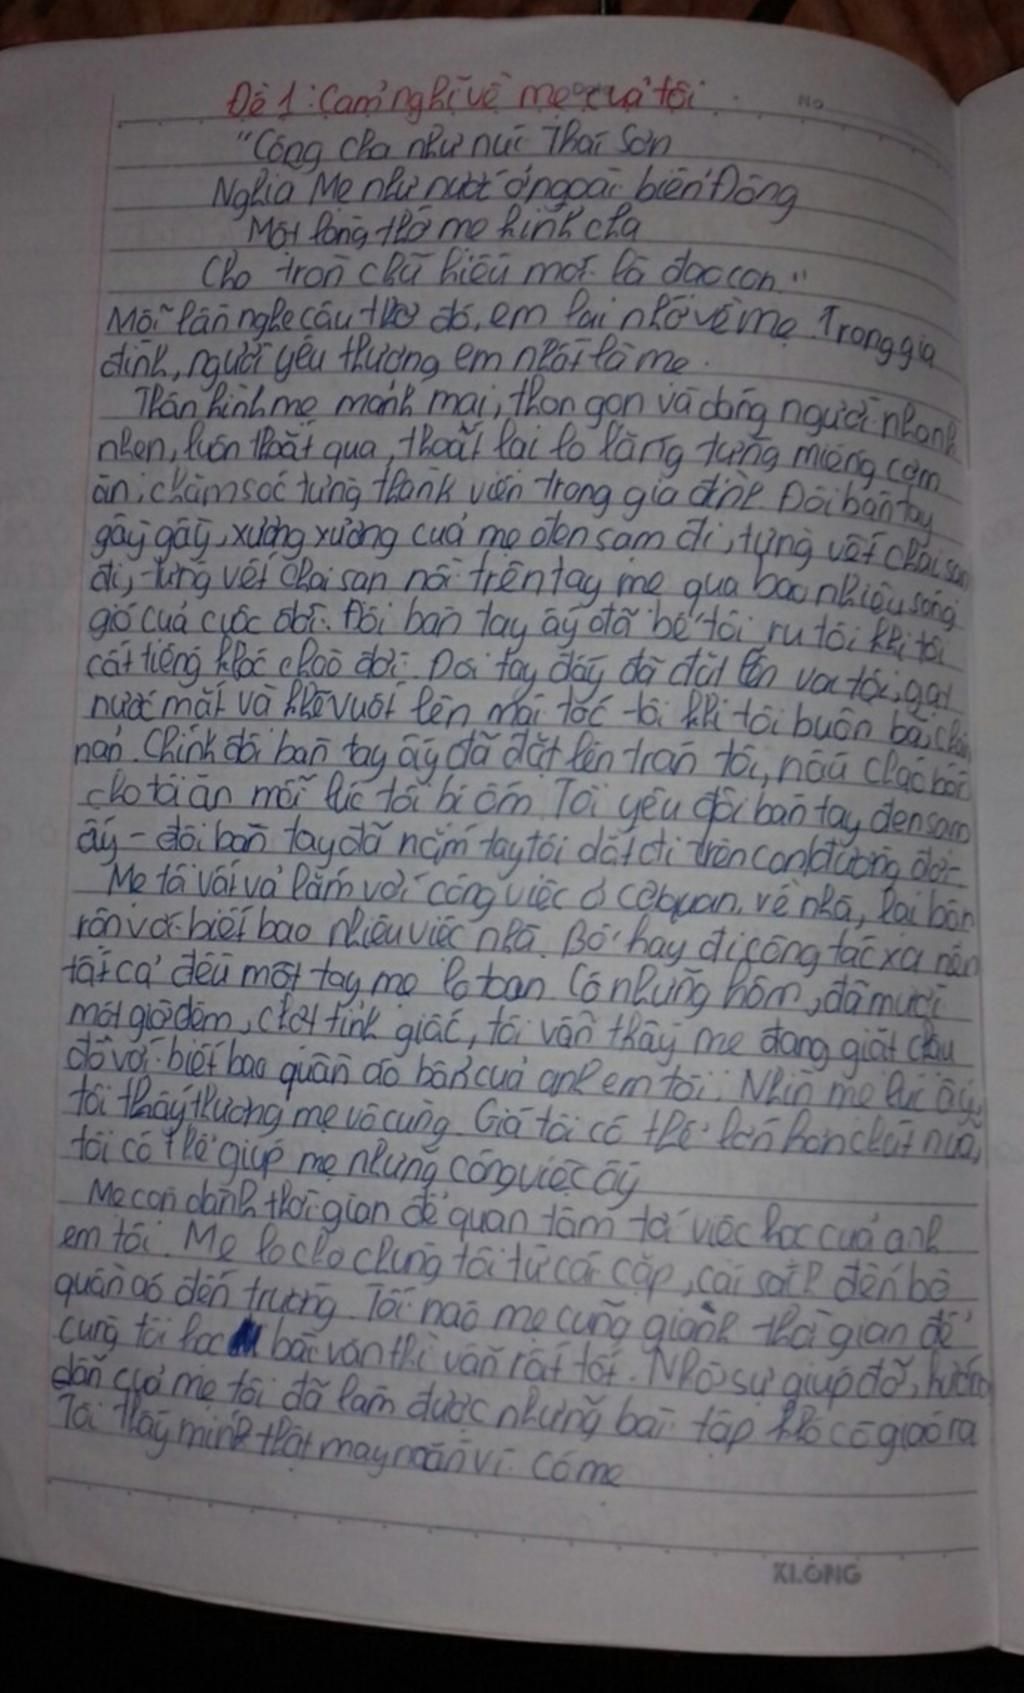 Đề 1: Cảm nghĩ về mẹ của tôi
No
"Công cha như núi Thái Sơn
Nghĩa Mẹ như nước ở ngoài biển Đông
Một lòng thờ mẹ kính cha
Cho tròn chữ hiếu mới là đạo con"
Mỗi lần nghe câu thơ đó, em lại nhớ về mẹ. Trong gia
đình, người yêu thương em nhất là mẹ.
Thân hình mẹ mảnh mai, thon gọn và dáng người nhanh
nhẹn, luôn thoắt qua, thoắt lại lo lắng từng miếng cơm
ăn, chăm sóc từng thành viên trong gia đình. Đôi bàn tay
gầy gầy, xương xương của mẹ đen sạm đi, từng vết chai sạn
đi, từng vết chai sạn nổi trên tay mẹ qua bao nhiêu sóng
gió của cuộc đời. Đôi bàn tay ấy đã bế tôi ru tôi khi tôi
cất tiếng khóc chào đời. Đôi tay đấy đã đặt lên vai tôi, gạt
nước mắt và khẽ vuốt lên mái tóc tôi khi tôi buồn bã, chán
nản. Chính đôi bàn tay ấy đã đặt lên trán tôi, nấu cháo
cho tôi ăn mỗi lúc tôi bị ốm. Tôi yêu đôi bàn tay đen sạm
ấy - đôi bàn tay đã nắm tay tôi dắt đi trên con đường đời.
Mẹ tá vất vả lắm với công việc ở cơ quan, về nhà, lại bận
rộn với biết bao nhiêu việc nhà. Bố hay đi công tác xa nên
tất cả đều một tay mẹ lo toan. Có những hôm, đã mười
một giờ đêm, chợt tỉnh giấc, tôi vẫn thấy mẹ đang giặt chậu
đồ với biết bao quần áo bẩn của anh em tôi. Nhìn mẹ lúc ấy,
tôi thấy thương mẹ vô cùng. Giá tôi có thể lớn hơn chút nữa,
tôi có thể giúp mẹ những công việc ấy
Mẹ còn dành thời gian để quan tâm tới việc học của anh
em tôi. Mẹ lo cho chúng tôi từ cái cặp, cái sách đến bộ
quần áo đến trường. Tối nào mẹ cũng giành thời gian để
cùng tôi học bài văn thì văn rất tốt. Nhờ sự giúp đỡ, hướng
dẫn của mẹ tôi đã làm được những bài tập khó cô giáo ra
Tôi thấy mình thật may mắn vì có mẹ
KLONG